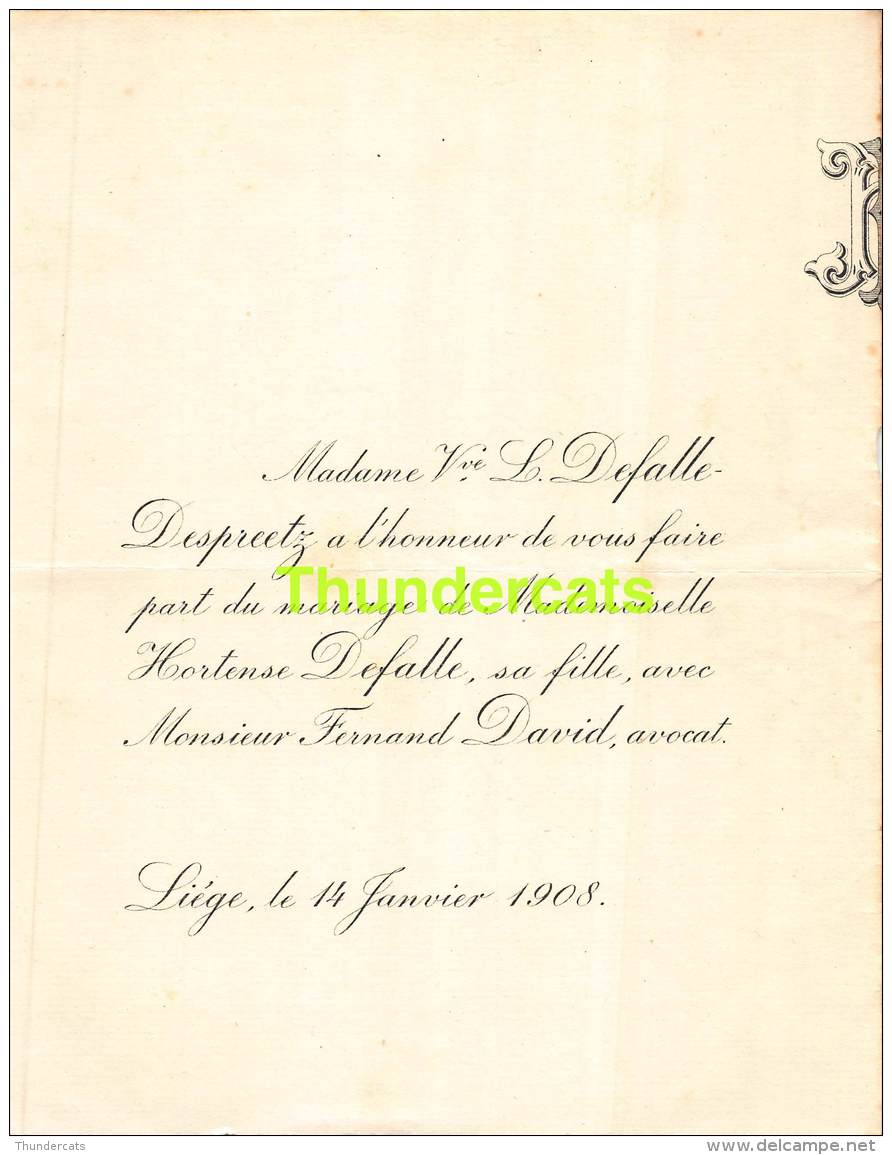 Madame Vve L. Defalle-
Despreetz a l'honneur de vous faire
part du mariage de Mademoiselle
Hortense Defalle, sa fille, avec
Monsieur Fernand David, avocat.
Liége, le 14 Janvier 1908.
Thundercats
Thundercats
www.delcampe.net